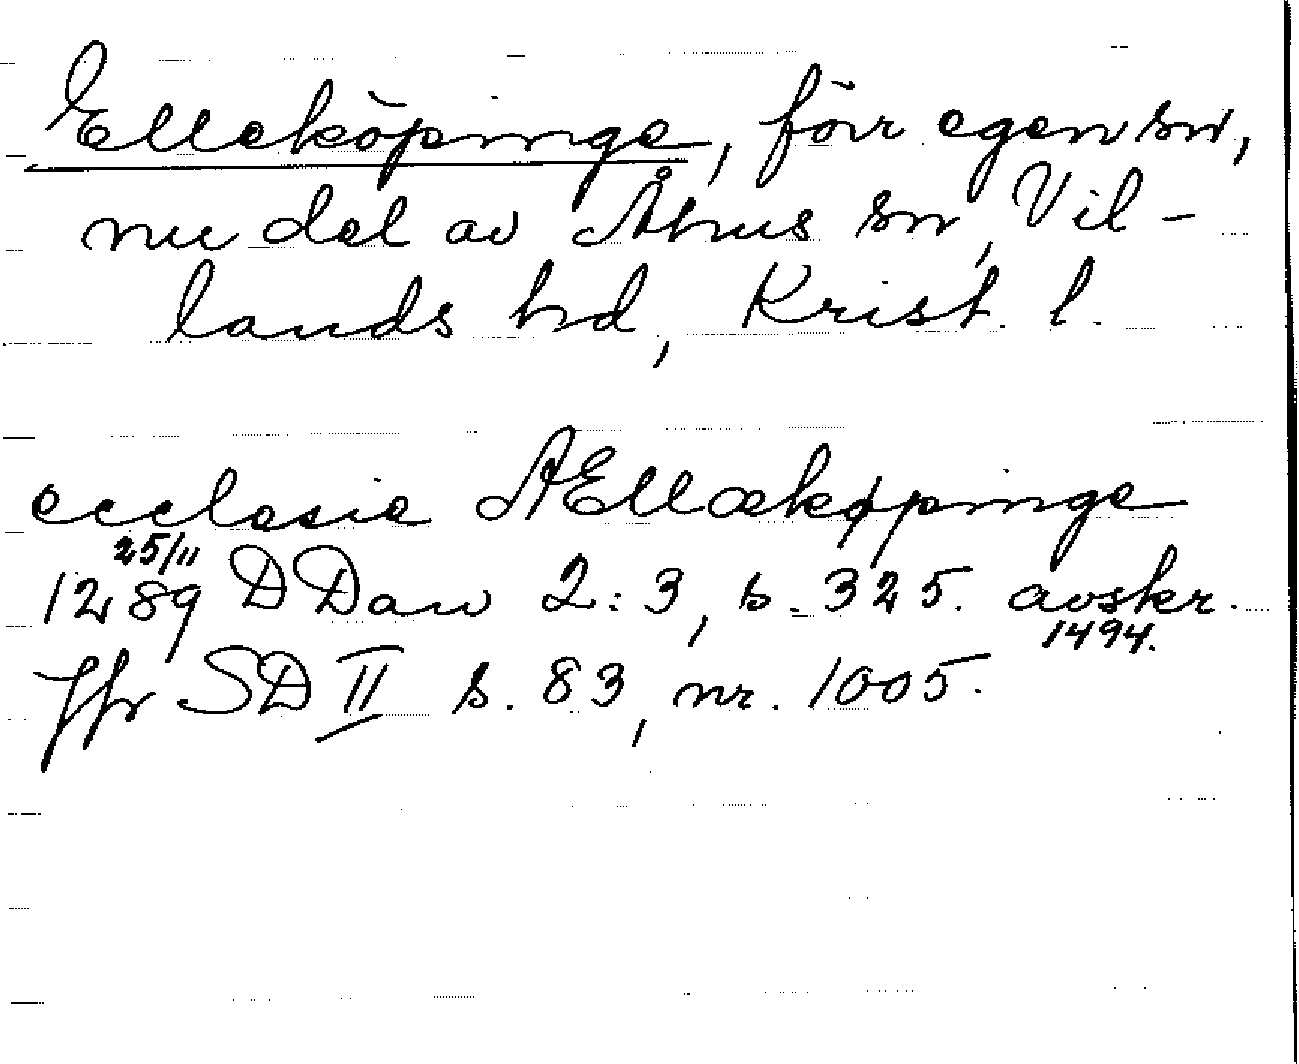 Elleköpinge, förr egen sn,
nu del av Åhus sn, Vil-
lands hd, Krist. l.
ecclesie Ællæképinge
25/11
1289 DDan 2:3, s. 325. avskr.
1494.
Jfr SD II s. 83, nr. 1005.